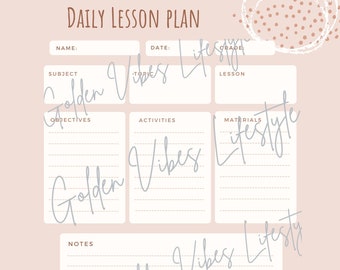 Daily Lesson plan
NAME: DATE: GRADE:
SUBJECT TOPIC LESSON
OBJECTIVES ACTIVITIES MATERIALS
NOTES
Golden Vibes Lifestyle
Golden Vibes Lifestyle
Golden Vibes Lifesty